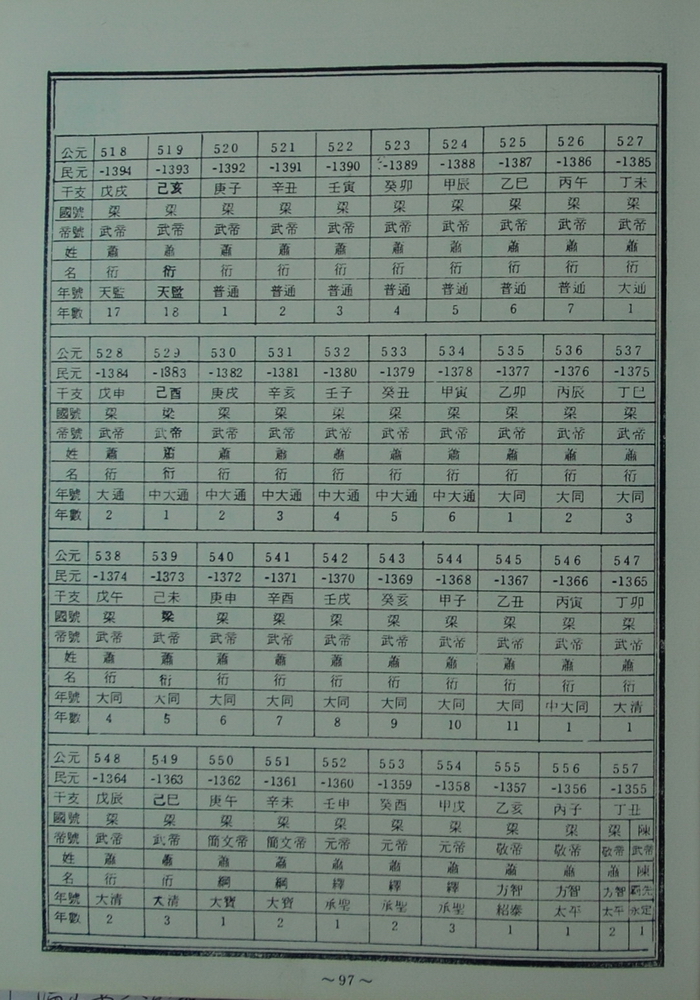 公元 518 519 520 521 522 523 524 525 526 527
民元 -1394 -1393 -1392 -1391 -1390 -1389 -1388 -1387 -1386 -1385
干支 戊戌 己亥 庚子 辛丑 壬寅 癸卯 甲辰 乙巳 丙午 丁未
國號 梁 梁 梁 梁 梁 梁 梁 梁 梁 梁
帝號 武帝 武帝 武帝 武帝 武帝 武帝 武帝 武帝 武帝 武帝
姓 蕭 蕭 蕭 蕭 蕭 蕭 蕭 蕭 蕭 蕭
名 衍 衍 衍 衍 衍 衍 衍 衍 衍 衍
年號 天監 天監 普通 普通 普通 普通 普通 普通 普通 大通
年數 17 18 1 2 3 4 5 6 7 1
公元 528 529 530 531 532 533 534 535 536 537
民元 -1384 -1883 -1382 -1381 -1380 -1379 -1378 -1377 -1376 -1375
干支 戊申 己酉 庚戌 辛亥 壬子 癸丑 甲寅 乙卯 丙辰 丁巳
國號 梁 梁 梁 梁 梁 梁 梁 梁 梁 梁
帝號 武帝 武帝 武帝 武帝 武帝 武帝 武帝 武帝 武帝 武帝
姓 蕭 蕭 蕭 蕭 蕭 蕭 蕭 蕭 蕭 蕭
名 衍 衍 衍 衍 衍 衍 衍 衍 衍 衍
年號 大通 中大通 中大通 中大通 中大通 中大通 中大通 大同 大同 大同
年數 2 1 2 3 4 5 6 1 2 3
公元 538 539 540 541 542 543 544 545 546 547
民元 -1374 -1373 -1372 -1371 -1370 -1369 -1368 -1367 -1366 -1365
干支 戊午 己未 庚申 辛酉 壬戌 癸亥 甲子 乙丑 丙寅 丁卯
國號 梁 梁 梁 梁 梁 梁 梁 梁 梁 梁
帝號 武帝 武帝 武帝 武帝 武帝 武帝 武帝 武帝 武帝 武帝
姓 蕭 蕭 蕭 蕭 蕭 蕭 蕭 蕭 蕭 蕭
名 衍 衍 衍 衍 衍 衍 衍 衍 衍 衍
年號 大同 大同 大同 大同 大同 大同 大同 大同 中大同 大清
年數 4 5 6 7 8 9 10 11 1 1
公元 548 549 550 551 552 553 554 555 556 557
民元 -1364 -1363 -1362 -1361 -1360 -1359 -1358 -1357 -1356 -1355
干支 戊辰 己巳 庚午 辛未 壬申 癸酉 甲戌 乙亥 丙子 丁丑
國號 梁 梁 梁 梁 梁 梁 梁 梁 梁 梁 陳
帝號 武帝 武帝 簡文帝 簡文帝 元帝 元帝 元帝 敬帝 敬帝 敬帝 武帝
姓 蕭 蕭 蕭 蕭 蕭 蕭 蕭 蕭 蕭 蕭 陳
名 衍 衍 綱 綱 繹 繹 繹 方智 方智 方智 霸先
年號 大清 大清 大寶 大寶 承聖 承聖 承聖 紹泰 太平 太平 永定
年數 2 3 1 2 1 2 3 1 1 2 1
~97~